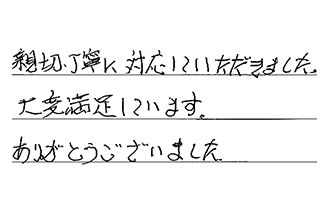 親切、丁寧に対応していただきました。
大変満足しています。
ありがとうございました